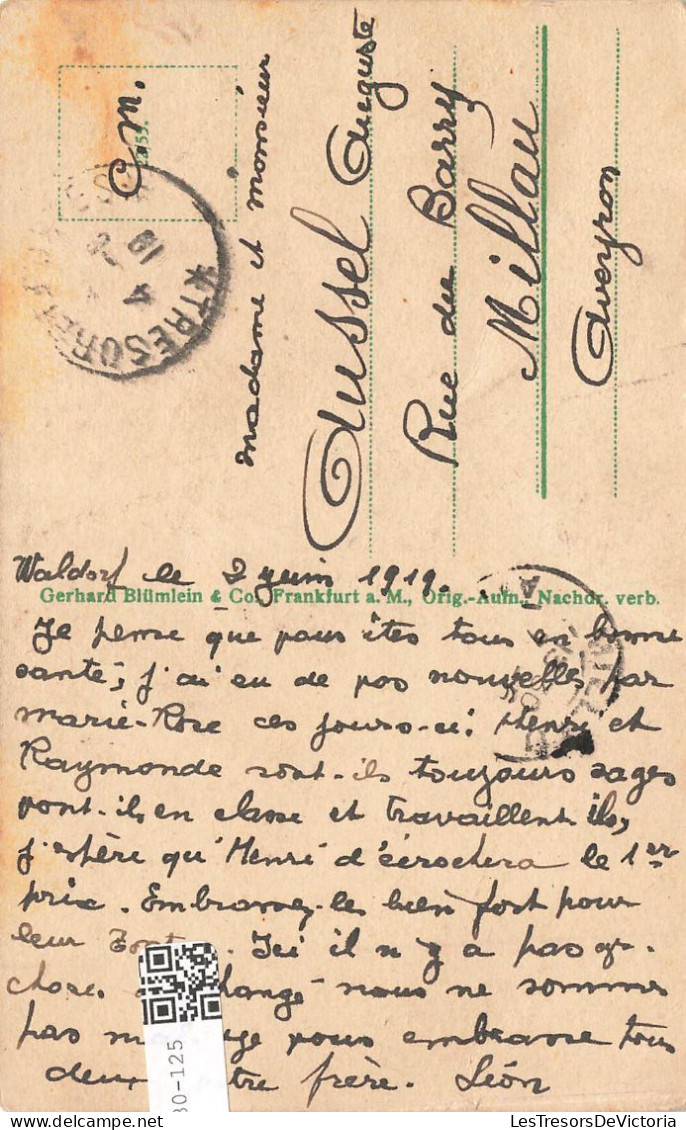 C.M.
2153.
*TRESOR ET
4
19
Madame et Monsieur
Aussel Auguste
Rue du Barry
Millau
Aveyron
Waldorf le 2 juin 1919.
Gerhard Blümlein & Co., Frankfurt a. M., Orig.-Aufn., Nachdr. verb.
Je pense que vous êtes tous en bonne
santé, j'ai eu de vos nouvelles par
Marie-Rose ces jours-ci. Henri et
Raymonde sont-ils toujours sages
vont-ils en classe et travaillent ils,
j'espère qu'Henri d'écrochera le 1er
prix. Embrassez-les bien fort pour
leur Ici il n'y a pas gr.
chose nous ne sommes
pas vous embrasse tous
deux frère. Léon
30-125
LesTresorsDeVictoria